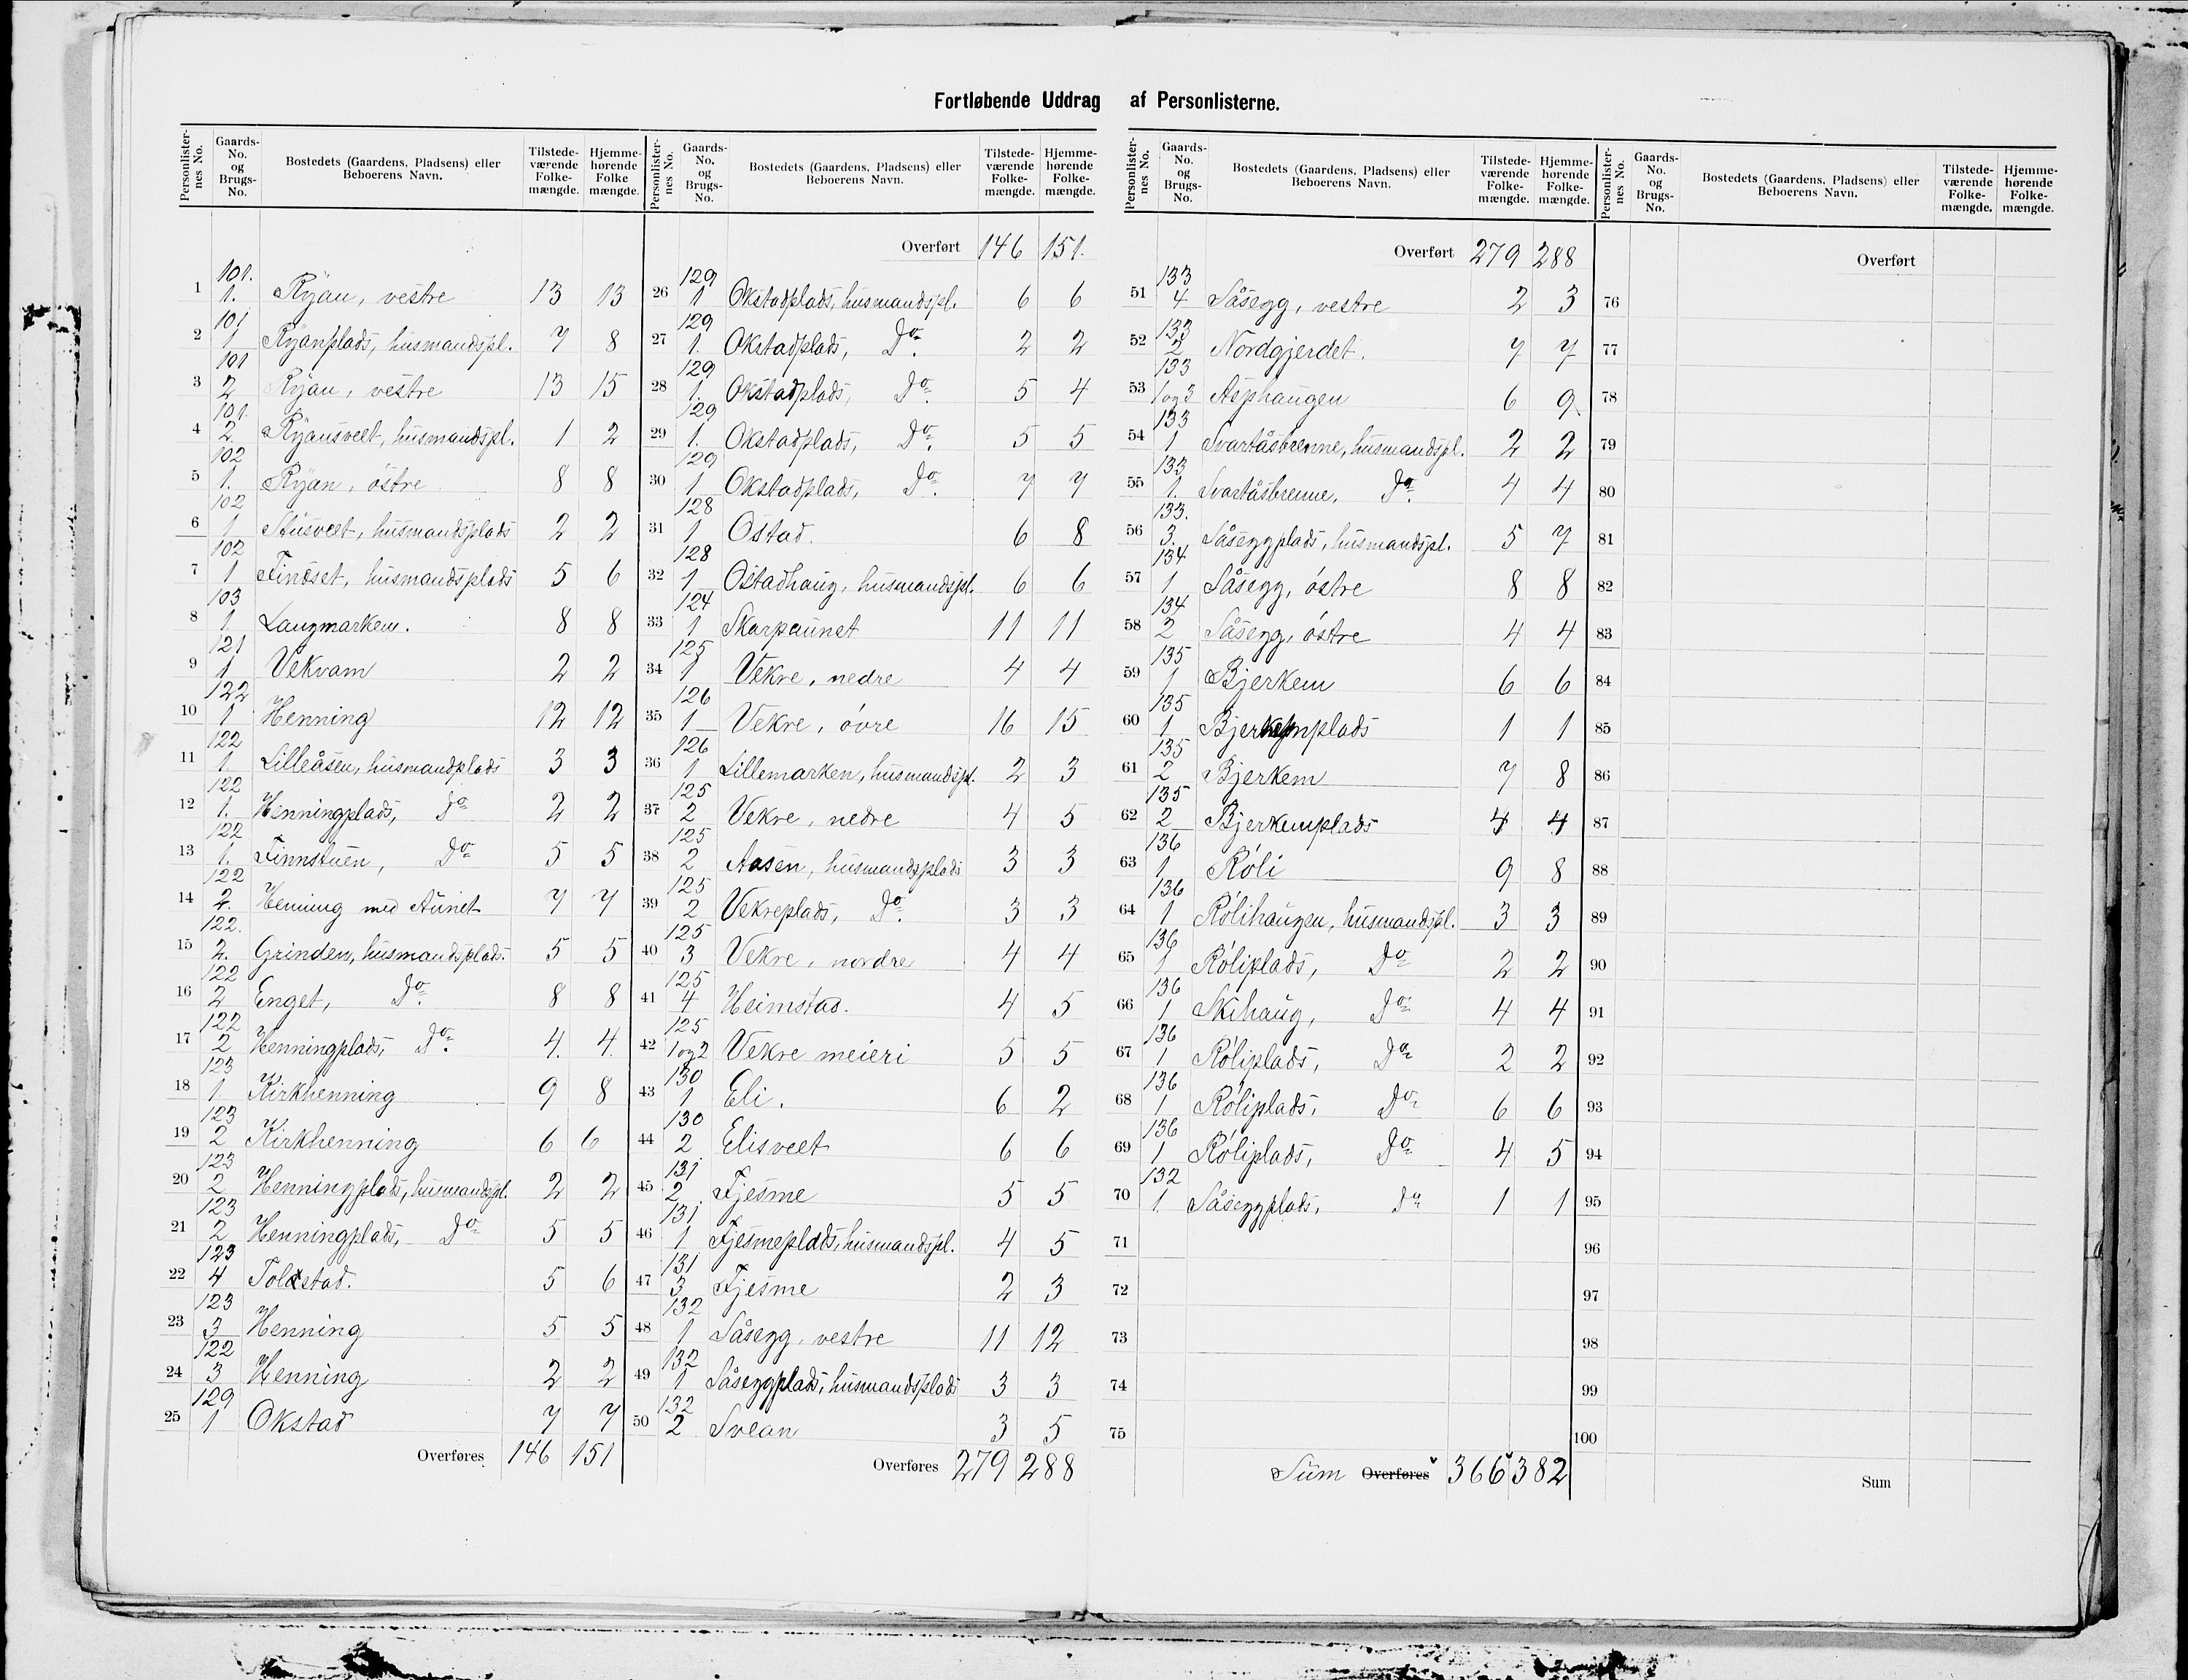 Fortløbende Uddrag af Personlisterne.
Personlisternes No. Gaards-No. og Brugs-No. Bostedets (Gaardens, Pladsens) eller Beboerens Navn. Tilstedeværende Folkemængde. Hjemmehørende Folkemængde.
1 101. 1. Ryan, vestre 13 13
2 101 1 Ryanplads, husmandspl. 7 8
3 101 2 Ryan, vestre 13 15
4 101. 2. Ryansveet, husmandspl. 1 2
5 102 1. Ryan, östre 8 8
6 102 1 Stusveet, husmandsplads 2 2
7 102 1 Finöset, husmandsplads 5 6
8 103 1. Langmarken. 8 8
9 121 1 Vekvam 2 2
10 122 1 Henning 12 12
11 122 1 Lilleåsen, husmandplads 3 3
12 122 1. Henningplads, Do 2 2
13 122 1. Finnstuen, Do 5 5
14 122 2. Henning med Aunet 7 7
15 122. 2. Grinden, husmandsplads. 5 5
16 122 2 Enget, Do. 8 8
17 122 2 Henningplads, Do. 4. 4.
18 123 1. Kirkhenning 9 8
19 123 2 Kirkhenning 6 6
20 123 2 Henningplads, husmandspl. 2 2
21 123 2 Henningplads, Do 5 5
22 123 4 Tolstad. 5 6
23 123 3 Henning 5 5
24 122 3 Henning 2 2
25 129 1 Okstad 7 7
Overføres 146 151
Personlisternes No. Gaards-No. og Brugs-No. Bostedets (Gaardens, Pladsens) eller Beboerens Navn. Tilstedeværende Folkemængde. Hjemmehørende Folkemængde.
Overført 146 151.
26 129 1 Okstadplads, husmandspl. 6 6
27 129 1. Okstadplads, Do. 2 2
28 129 1. Okstadplads, Do. 5 4
29 129 1. Okstadplads, Do. 5 5
30 129 1 Okstadplads, Do. 7 7
31 128 1 Ostad. 6 8
32 128 1 Ostadhaug, husmandspl. 6 6
33 124 1 Skarpaunet 11 11
34 125 1 Vekre, nedre 4 4
35 126 1 Vekre, övre 16 15
36 126 1 Lillemarken, husmandspl. 2 3
37 125 2 Vekre, nedre 4 5
38 125 2 Aasen, husmandsplads 3 3
39 125 2 Vekreplads, Do. 3 3
40 125 3 Vekre, nordre 4 4
41 125 4 Heimstad. 4 5
42 125 1 og 2 Vekre meieri 5 5
43 130 1 Eli. 6 2
44 130 2 Elisveet 6 6
45 131 2 Fjesme 5 5
46 131 1 Fjesmeplads, husmandspl. 4 5
47 131 3 Fjesme 2 3
48 132 1 Såsegg, vestre 11 12
49 132 1 Såseggplads, husmandsplads 3 3
50 132 2 Svean 3 5
Overføres 279 288
Personlisternes No. Gaards-No. og Brugs-No. Bostedets (Gaardens, Pladsens) eller Beboerens Navn. Tilstedeværende Folkemængde. Hjemmehørende Folkemængde.
Overført 279 288
51 133 4 Såsegg, vestre 2 3
52 133 2 Nordgjerdet. 7 7
53 133 1 og 3 Asphaugen 6 9
54 133 1 Svartåsbrenne, husmandspl. 2 2
55 133 1. Svartåsbrenne, Do. 4 4
56 133. 3. Såseggplads, husmandspl. 5 7
57 134 1 Såsegg, östre 8 8
58 134 2 Såsegg, östre 4 4
59 135 1 Bjerkem 6 6
60 135 1 Bjerkemplads 1 1
61 135 2 Bjerkem 7 8
62 135 2 Bjerkemplads 4 4
63 136 1 Röli 9 8
64 136 1 Rölihaugen, husmandspl. 3 3
65 136 1 Röliplads, Do 2 2
66 136 1 Skihaug, Do 4 4
67 136 1 Röliplads, Do 2 2
68 136 1 Röliplads, Do 6 6
69 136 1 Röliplads, Do 4 5
70 132 1. Såseggplads, Do 1 1
71
72
73
74
75
Sum Overføres 366 382
Personlisternes No. Gaards-No. og Brugs-No. Bostedets (Gaardens, Pladsens) eller Beboerens Navn. Tilstedeværende Folkemængde. Hjemmehørende Folkemængde.
Overført
76
77
78
79
80
81
82
83
84
85
86
87
88
89
90
91
92
93
94
95
96
97
98
99
100
Sum